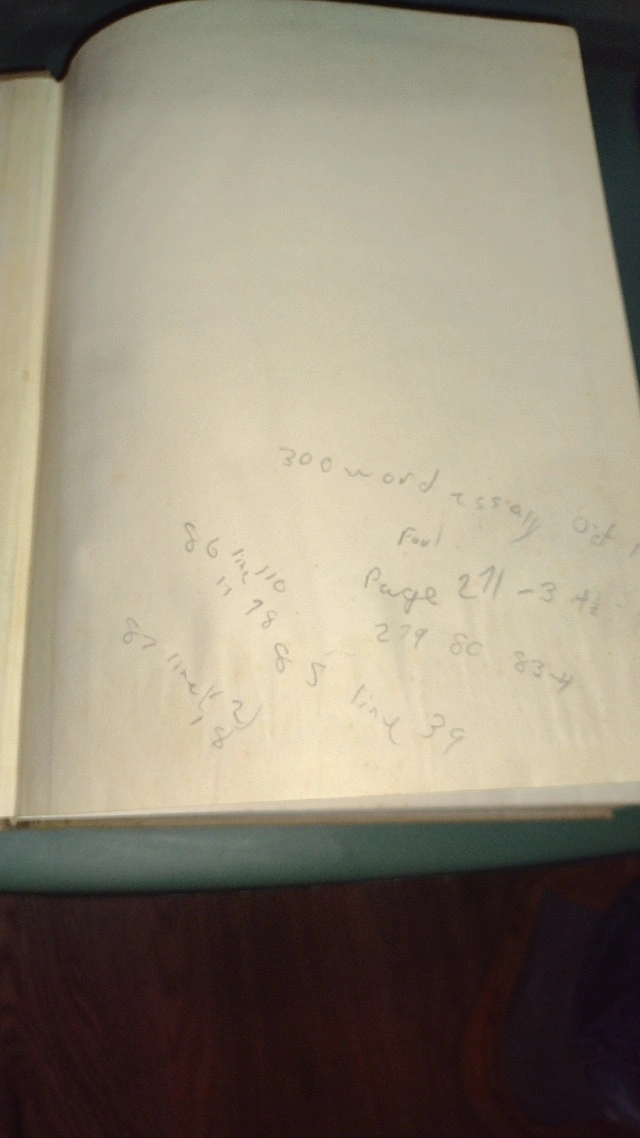 300 word essay
Fool
Page 271-3
279 80 83-4
86 line 110
" 78
85 line 39
87 line (12)